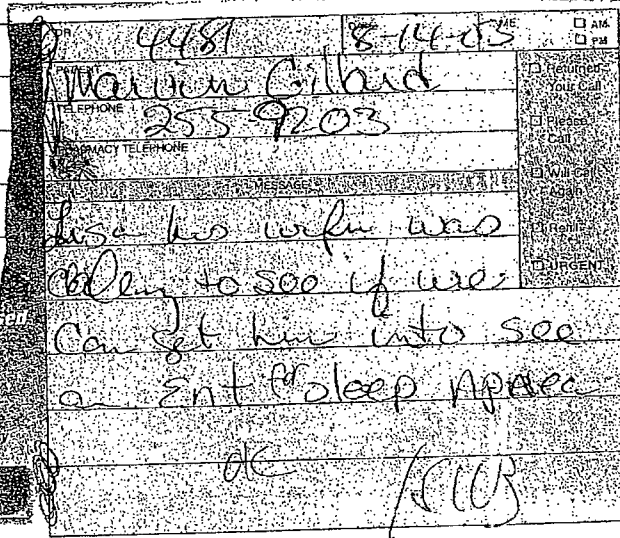 4481 8-14-03 TIME AM
PM
Marvin Gilbard
TELEPHONE 255-9203
PHARMACY TELEPHONE
Returned Your Call
Please Call
Will Call Again
Refill
URGENT
MESSAGE
Lisa his wife was
calling to see if we
can get him into see
an Ent for sleep Apnea
ok